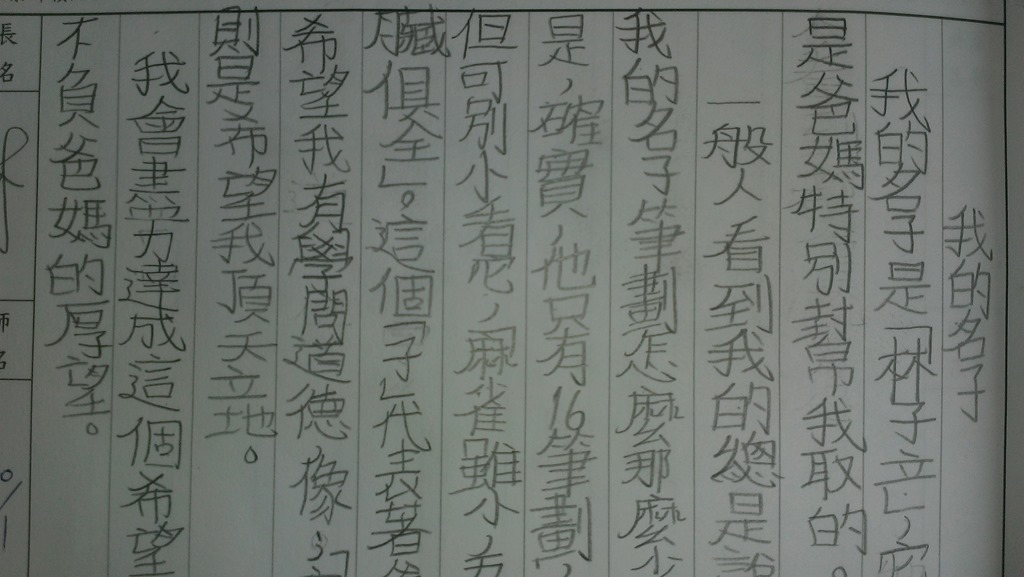 我的名子
我的名子是「林子立」，它
是爸媽特別封帛我取的。
一般人看到我的總是說
我的名子筆劃怎麼那麼少
是，確實，他只有16筆劃，
但可別小看尼，麻雀雖小，五
臟俱全」。這個「子」代表著爸
希望我有學問道德，像，
則是希望我頂天立地。
我會盡力達成這個希望
不負爸媽的厚望。
張名
師名